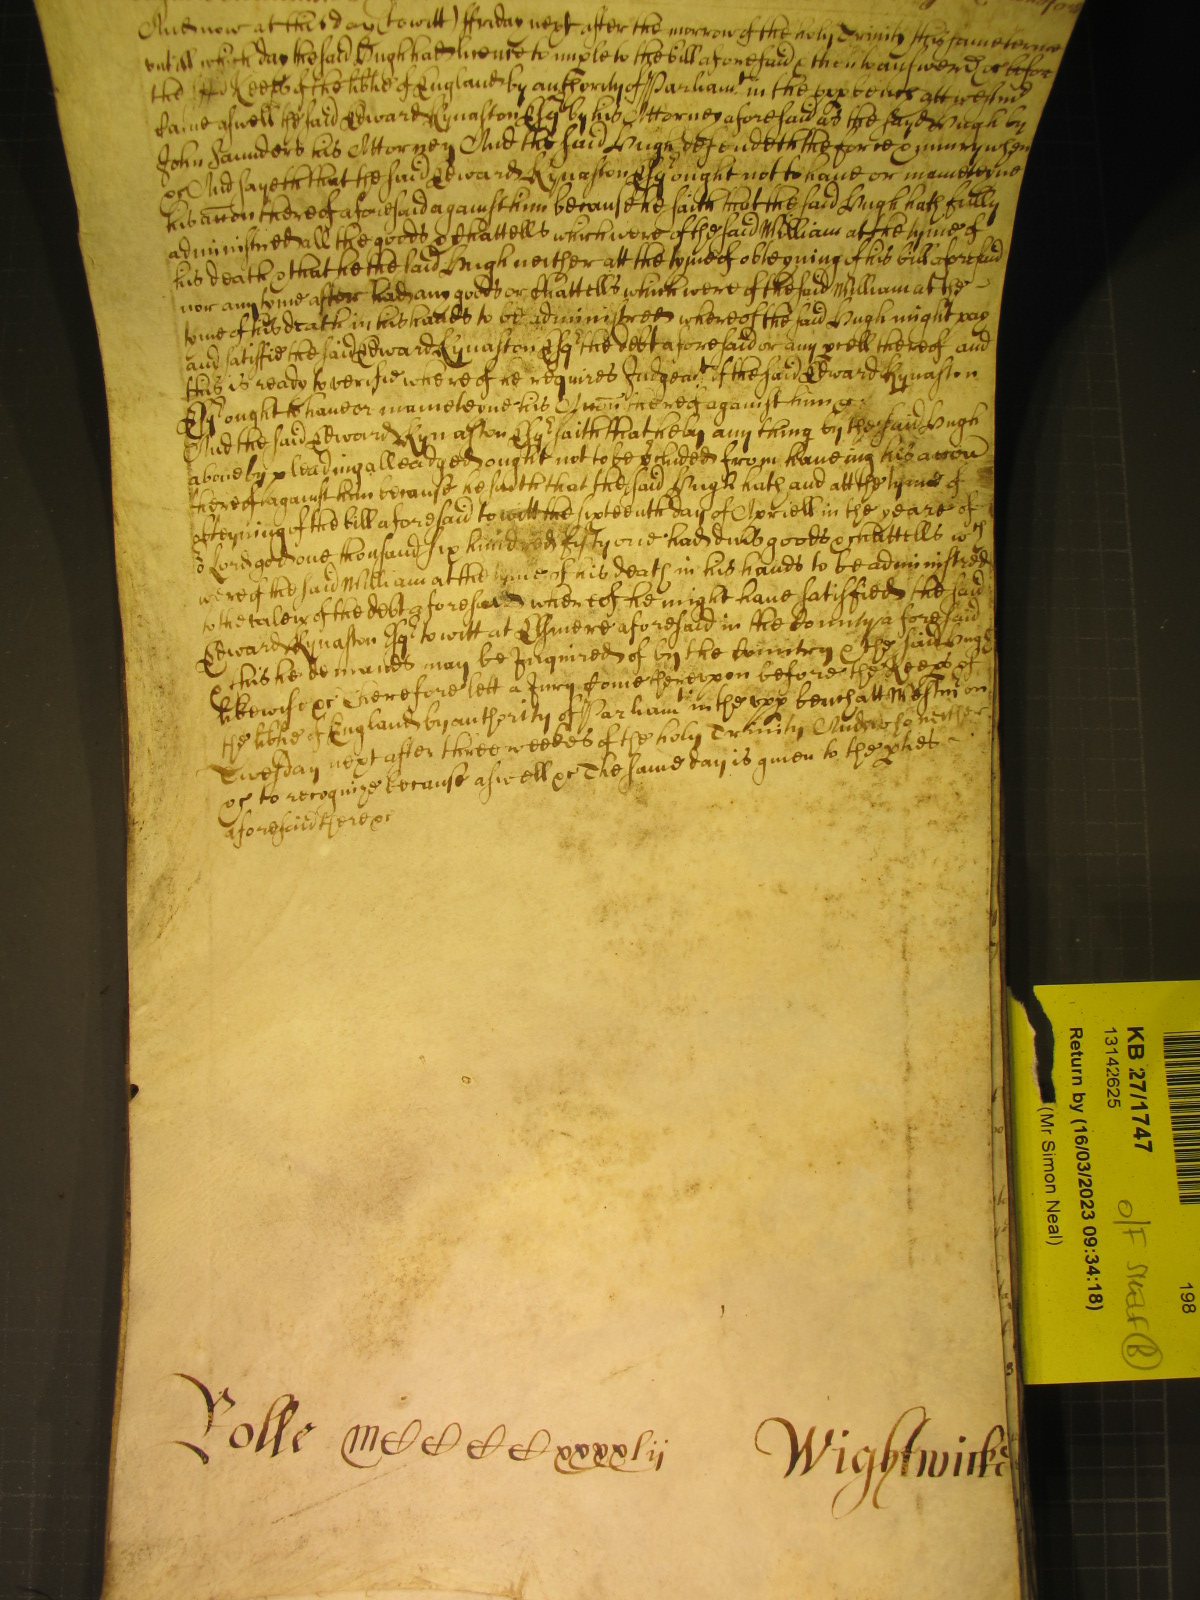 And now at this day (to witt) ffriday next after the morrow of the holy Trinity this same terme
untill which day the said Hugh had licence to imple to the bill aforesaid & then to answere &c before
the Keeps of the libtie of England by authority of Parliamt in the upp bench att Westm
came aswell the said Edward Kynaston Esqr by his Attorney aforesaid as the sayd Hugh by
John Saunders his Attorney And the said Hugh defendeth the force & iniury when
&c And sayeth that the said Edward Kynaston Esqr ought not to haue or maineteyne
his accon thereof aforesaid against him because he saith that the said Hugh hath fully
administred all the goods & chattells which were of the said William at the tyme of
his death & that he the said Hugh neither att the tyme of obteyning of his bill aforesaid
nor any tyme after had any goods or chattells which were of the said William at the
tyme of his death in his hands to be administred whereof the said Hugh might pay
and satisfie the said Edward Kynaston Esqr the debt aforesaid or any pcell thereof and
this is ready to verifie whereof he requires Judgeamt if the said Edward Kynaston
Esqr ought to haue or maineteyne his Accon thereof against him &c
And the said Edward Kynaston Esqr saith that he by any thing by the said Hugh
aboue by pleading alleadged ought not to be pcluded from haueing his accon
thereof against him because he saith that the said Hugh hath and att the tyme of
obteyning of the bill aforesaid to witt the sixteenth day of Apriell in the yeare of
or Lord god one thousand six hundred fifty one had diuis goods & chattells wch
were of the said William at the tyme of his death in his hands to be administred
to the valew of the debt aforesaid whereof he might haue satisfied the said
Edward Kynaston Esqr to witt at Elsmere aforesaid in the County aforesaid
& this he demands may be Inquired of by the Country & the said Hugh
likewise &c Therefore lett a Jury come therevpon before the Keeps of
the libtie of England by authority of Parliamt in the upp bench att Westm on
Tuesday next after three weekes of the holy Trinity And who neither
&c to recognize because aswell &c The same day is giuen to the pties
aforesaid there &c
Rolle mCCCCxxxxlii Wightwicke
KB 27/1747
13142625
Return by (16/03/2023 09:34:18)
(Mr Simon Neal)
198
O/F